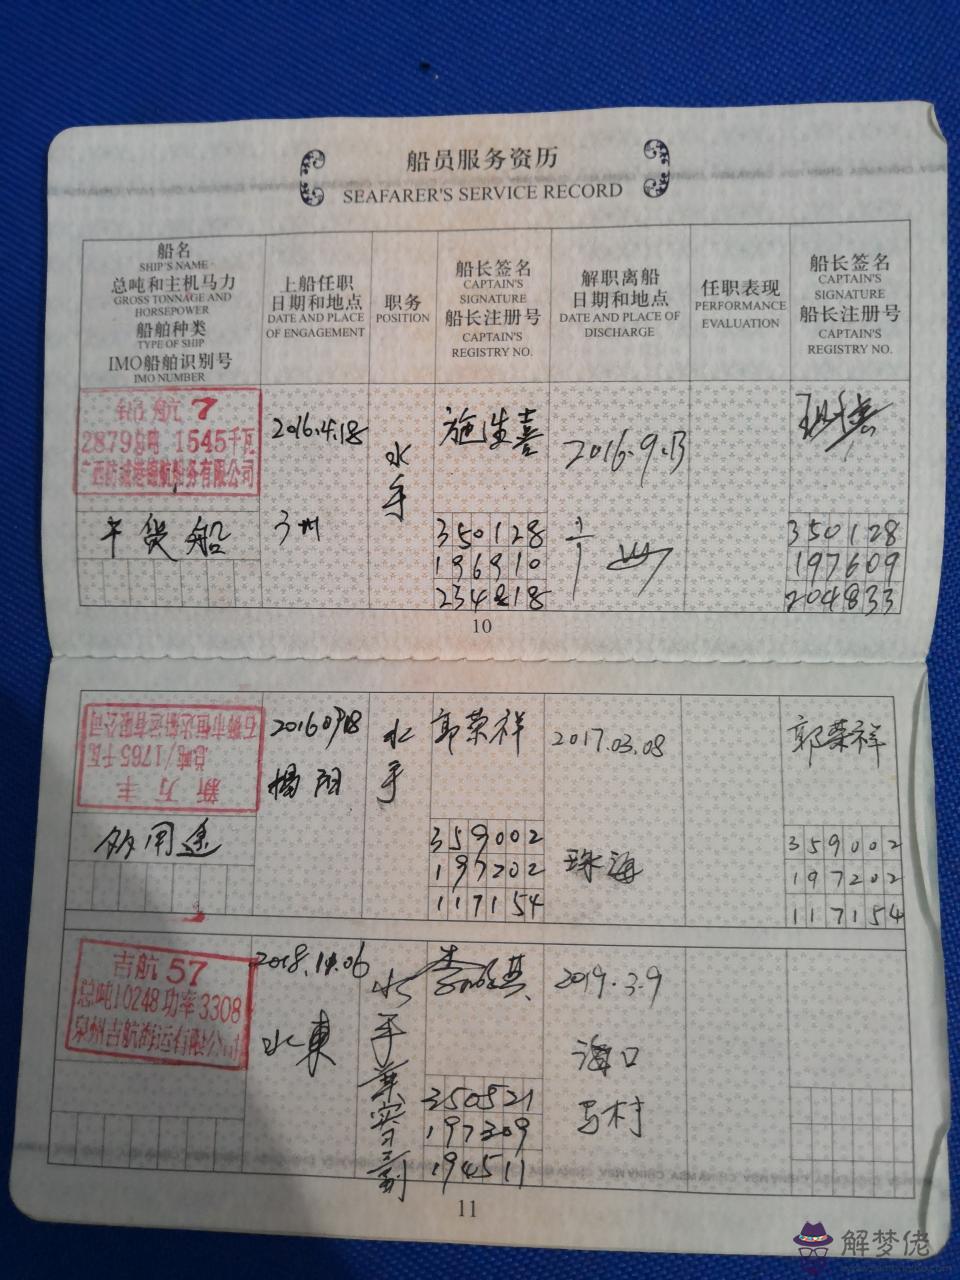 船员服务资历
SEAFARER'S SERVICE RECORD
船名
SHIP'S NAME
总吨和主机马力
GROSS TONNAGE AND
HORSEPOWER
船舶种类
TYPE OF SHIP
IMO船舶识别号
IMO NUMBER
上船任职
日期和地点
DATE AND PLACE
OF ENGAGEMENT
职务
POSITION
船长签名
CAPTAIN'S
SIGNATURE
船长注册号
CAPTAIN'S
REGISTRY NO.
解职离船
日期和地点
DATE AND PLACE OF
DISCHARGE
任职表现
PERFORMANCE
EVALUATION
船长签名
CAPTAIN'S
SIGNATURE
船长注册号
CAPTAIN'S
REGISTRY NO.
航 7
2879总吨 1545千瓦
广西防城港锦航船务有限公司
干货船
2016.4.18
水手
施生喜
350128
196910
234818
2016.9.13
350128
197609
204833
10
新万丰
总吨/1765千瓦
石狮市恒达船运有限公司
多用途
20160918
揭阳
水手
郭荣祥
359002
197202
117154
2017.03.08
珠海
郭荣祥
359002
197202
117154
吉航 57
总吨10248功率3308
泉州吉航海运有限公司
水東
水手兼实习三副
350521
197309
194511
2019.3.9
海口
马村
11
解梦佬